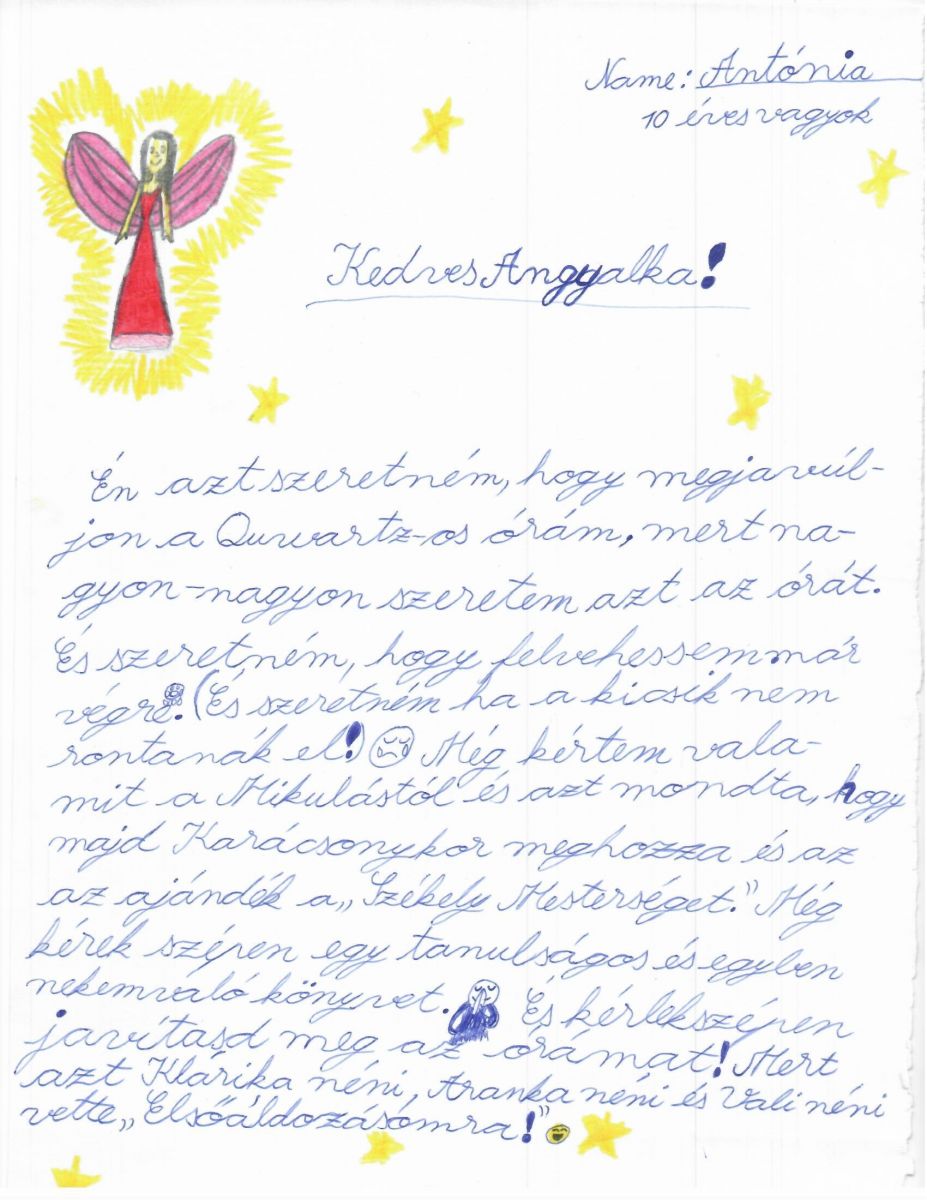 Name: Antónia
10 éves vagyok
Kedves Angyalka!
Én azt szeretném, hogy megjavúl-
jon a Quwartz-os órám, mert na-
gyon-nagyon szeretem azt az órát.
És szeretném, hogy felvehessem már
végre. (És szeretném ha a kicsik nem
rontanák el!) Még kértem vala-
mit a Mikulástól és azt mondta, hogy
majd Karácsonykor meghozza és az
az ajándék a „Székely Mesterséget.” Még
kérek szépen egy tanulságos és egyben
nekem való könyvet. És kérlek szépen
javítasd meg az órámat! Mert
azt Klárika néni, Aranka néni és Vali néni
vette „Elsőáldozásomra!”